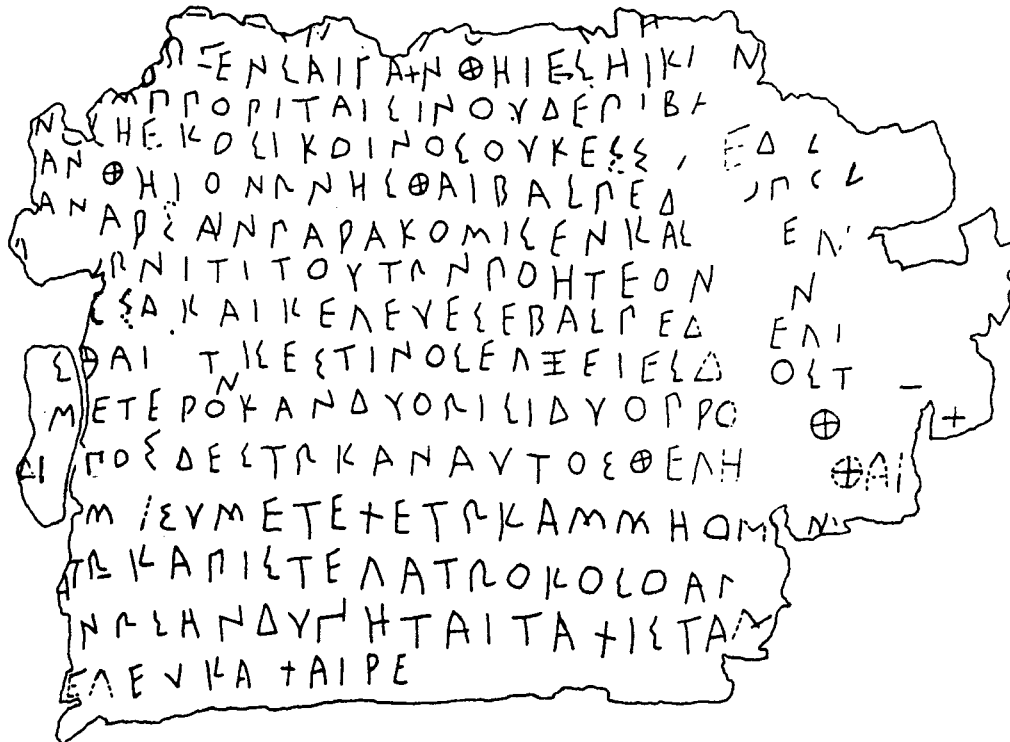 Ω ΕΝΣΑΙΓΑΧΝΘΗΙΕΣΗΙΚΙ Ν
ΜΠΟΡΙΤΑΙΣΙΝΟΥΔΕΠΙΒΑ
Ν ΗΕΚΟΣΙΚΟΙΝΟΣΟΥΚΕΣΣ ΕΔΣ
ΑΝΘΗΙΟΝΩΝΗΣΘΑΙΒΑΣΠΕΔ ΩΠΣ
ΑΝΑΡΣΑΝΠΑΡΑΚΟΜΙΣΕΝΚΑΣ ΕΝ
ΩΝΙΤΙΤΟΥΤΩΝΠΟΗΤΕΟΝ Ν
ΣΑΚΑΙΚΕΛΕΥΕΣΕΒΑΣΠΕΔ ΕΛΙ
ΣΘΑΙ ΤΙΣΕΣΤΙΝΟΣΕΛΞΕΙΕΣΔ ΟΣΤ
ΜΕΤΕΡΟΝΚΑΝΔΥΟΩΣΙΣΙΔΥΟΠΡΟ Θ Χ
ΔΙΠΟΣΔΕΣΤΩΚΑΝΑΥΤΟΣΘΕΛΗ ΘΑΙ
ΜΙΣΥΜΕΤΕΧΕΤΩΚΑΜΜΗΟΜ Ν
ΑΤΩΚΑΠΙΣΤΕΛΑΤΩΟΚΟΣΟΑΓ
ΝΩΣΗΝΔΥΝΗΤΑΙΤΑΧΙΣΤΑΜ
ΕΛΕΥΚΑΧΑΙΡΕ